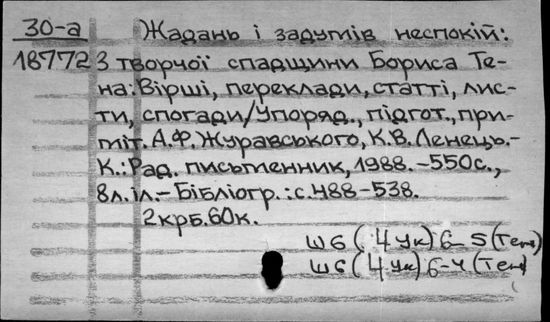 30-а Жадань і задумів неспокій:
18772 З творчої спадщини Бориса Те-
на: Вірші, переклади, статті, лис-
ти, спогади/Упоряд., підгот., при-
міт. А.Ф. Журавського, К.В. Ленець.-
К.: Рад. письменник, 1988. -550с.,
8л. іл.- Бібліогр.: с. 488-538.
2крб. 60к.
Ш6(4Ук)6-5(Тен)
Ш6(4Ук)6-4(Тен)